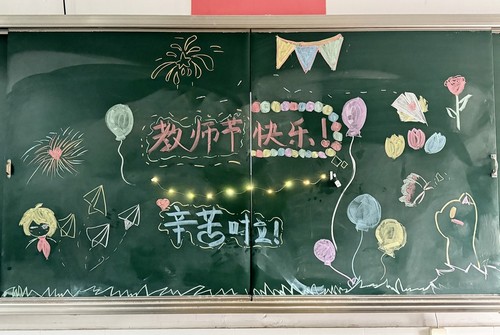 教师节快乐!
辛苦啦!